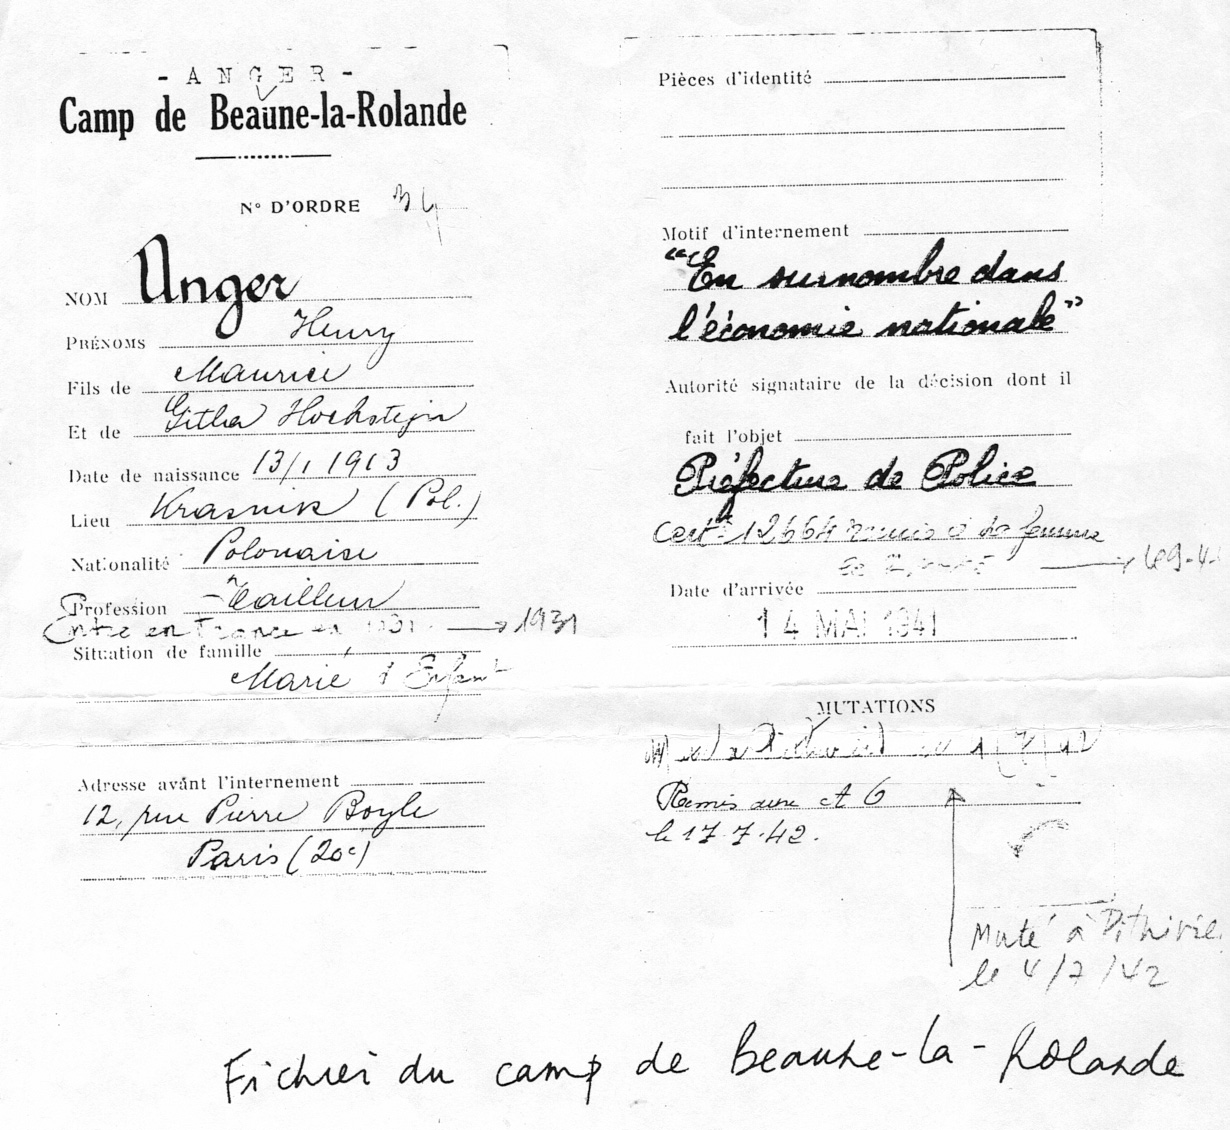 - ANGER -
Camp de Beaune-la-Rolande
N° D'ORDRE 34
NOM Unger
PRÉNOMS Henry
Fils de Maurice
Et de Gitla Hochstejn
Date de naissance 13/1 1913
Lieu Krasnik (Pol.)
Nationalité Polonaise
Profession Tailleur
Entré en France en 1931 → 1931
Situation de famille
Marié 1 Enfant
Adresse avant l'internement
12, rue Pierre Boyle
Paris (20e)
Pièces d'identité
Motif d'internement
"En surnombre dans
l'économie nationale"
Autorité signataire de la décision dont il
fait l'objet
Préfecture de Police
Cert. 12664 remis à sa femme
le
Date d'arrivée
14 MAI 1941
MUTATIONS
Muté à Pithiviers le 4/7/42
Remis aux A 6
le 17.7.42.
Muté à Pithivie
le 4/7/42
Fichier du camp de Beaune-la-Rolande